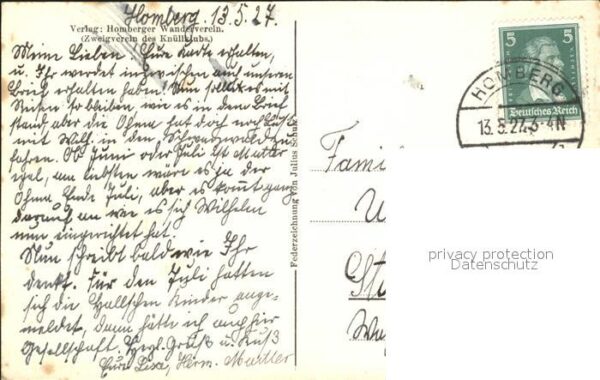 Homberg 13.5.27.
Verlag: Homberger Wanderverein.
(Zweigverein des Knüllklubs.)
Meine Lieben. Eure Karte erhalten,
u. Ihr werdet inzwischen auch unseren
Brief erhalten haben! Nun sollte es mit
bleiben, wie es in dem Brief
stand, aber die Ohma hat doch noch Lust
mit Wilh. in den Schwarzwald zu
fahren. Ob Juni oder Juli ist Mutter
egal, am liebsten wäre es ja der
Ohma Ende Juli, aber es kommt ganz
darauf an wie es sich Wilhelm
nun eingerichtet hat.
Nun schreibt bald wie Ihr
denkt. Für den Juli hatten
sich die Hallschen Kinder ange-
meldet, dann hätte ich auch hier
Gesellschaft. Herzl. Gruß u. Kuß
Eure Lisa, Herm. Mutter
Federzeichnung von Julius Schulz
5 5
Deutsches Reich
HOMBERG
13.5.27. 3-4N
Famil
U
St
privacy protection
Datenschutz